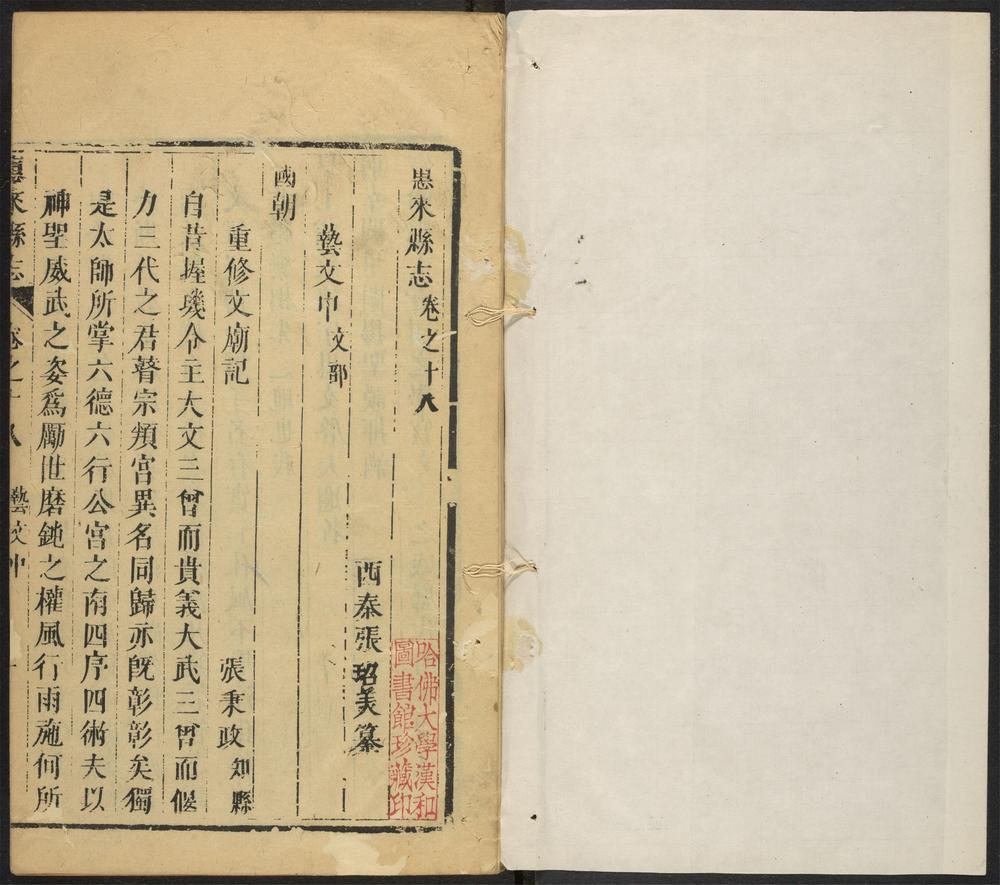 惠來縣志卷之十八
西秦張玿美纂
藝文中文部
國朝
重修文廟記
張秉政知縣
自昔握璣令主大文三曾而貴義大武三曾而偃
力三代之君瞽宗頖宮異名同歸亦旣彰彰矣獨
是太師所掌六德六行公宮之南四序四術夫以
神聖威武之姿爲厲世磨鈍之權風行雨施何所
惠來縣志
卷之十八
藝文中
一
哈佛大學漢和
圖書館珍藏印